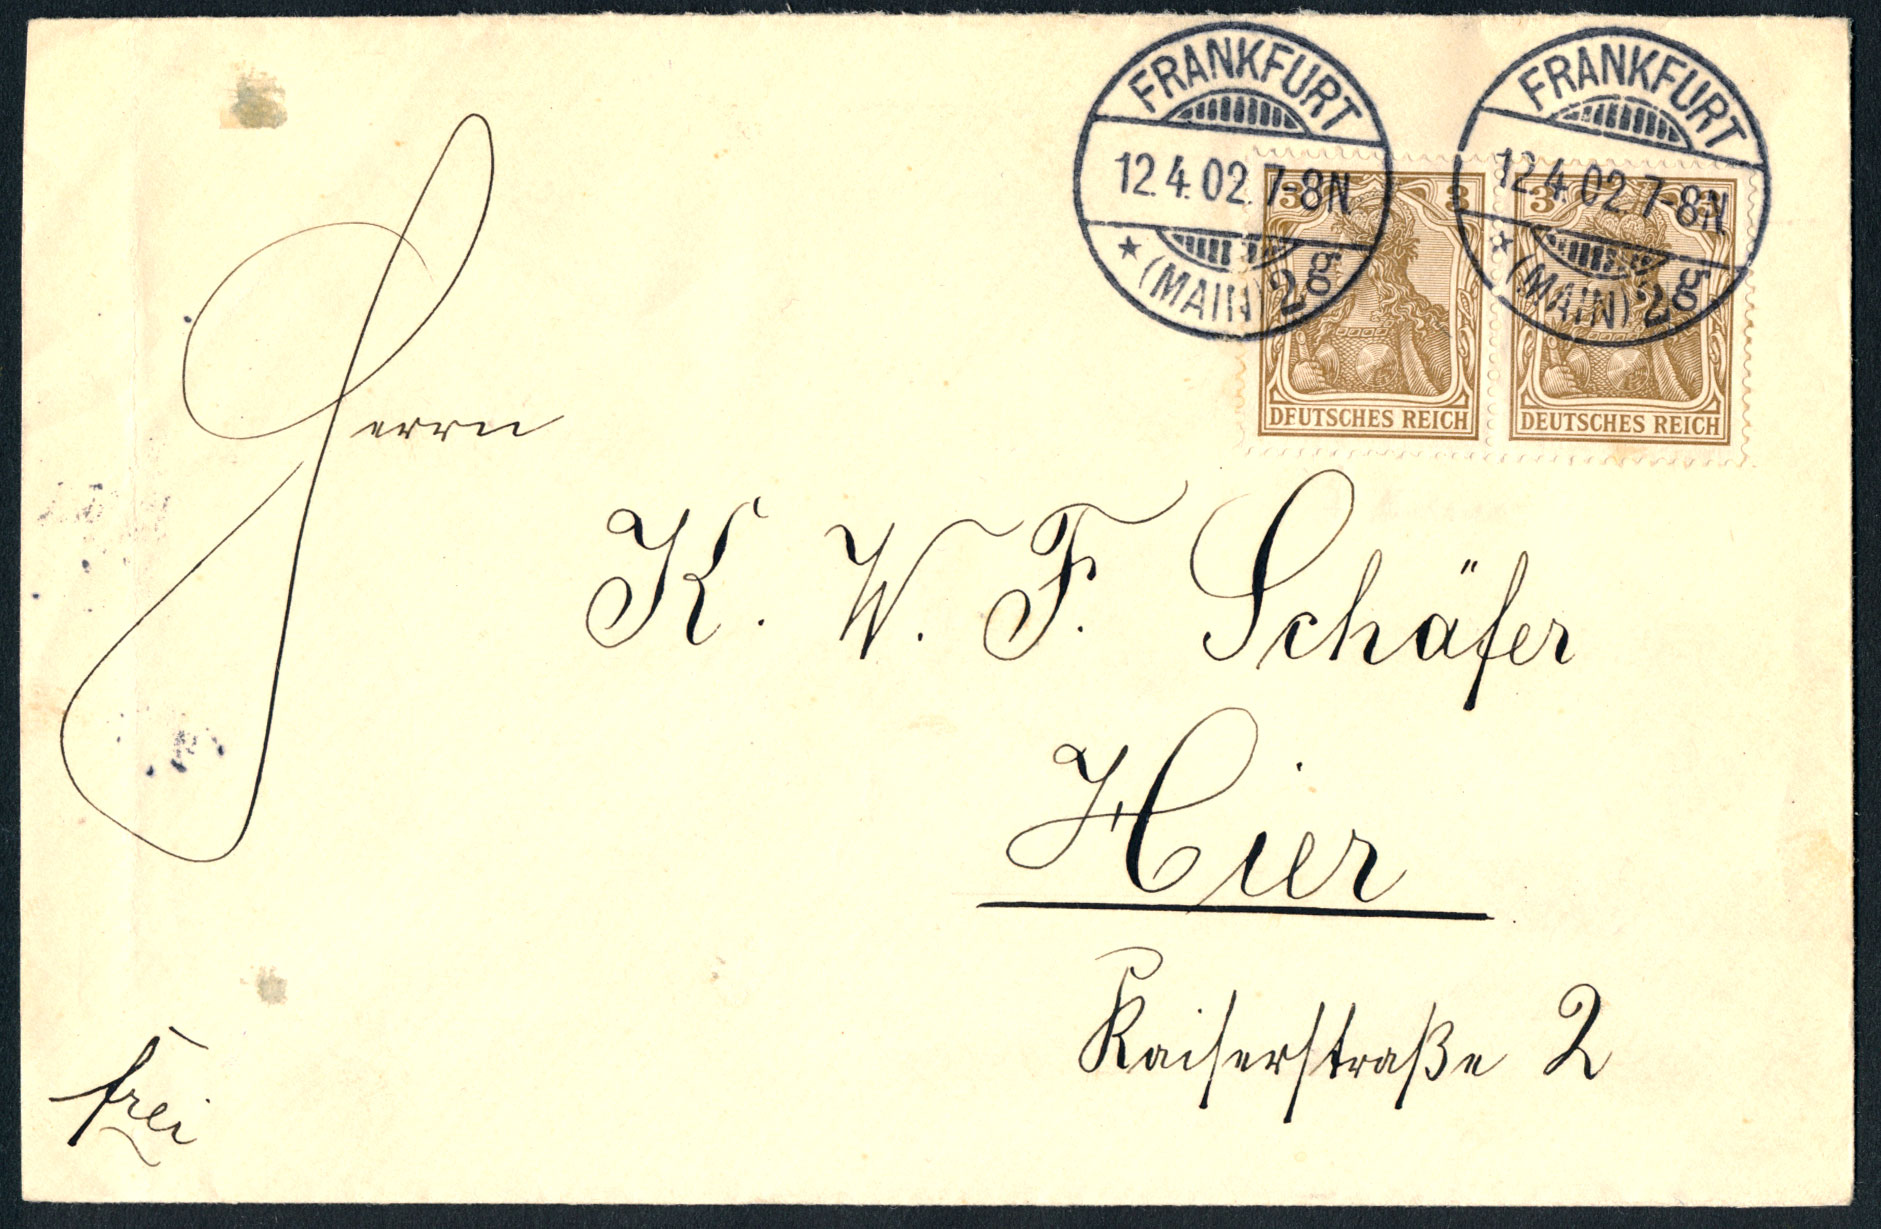 FRANKFURT
12.4.02. 7-8N
* (MAIN) 2g
FRANKFURT
12.4.02. 7-8N
* (MAIN) 2g
3 3
DEUTSCHES REICH
3 3
DEUTSCHES REICH
Herrn
K. W. F. Schäfer
Hier
Kaiserstraße 2
frei